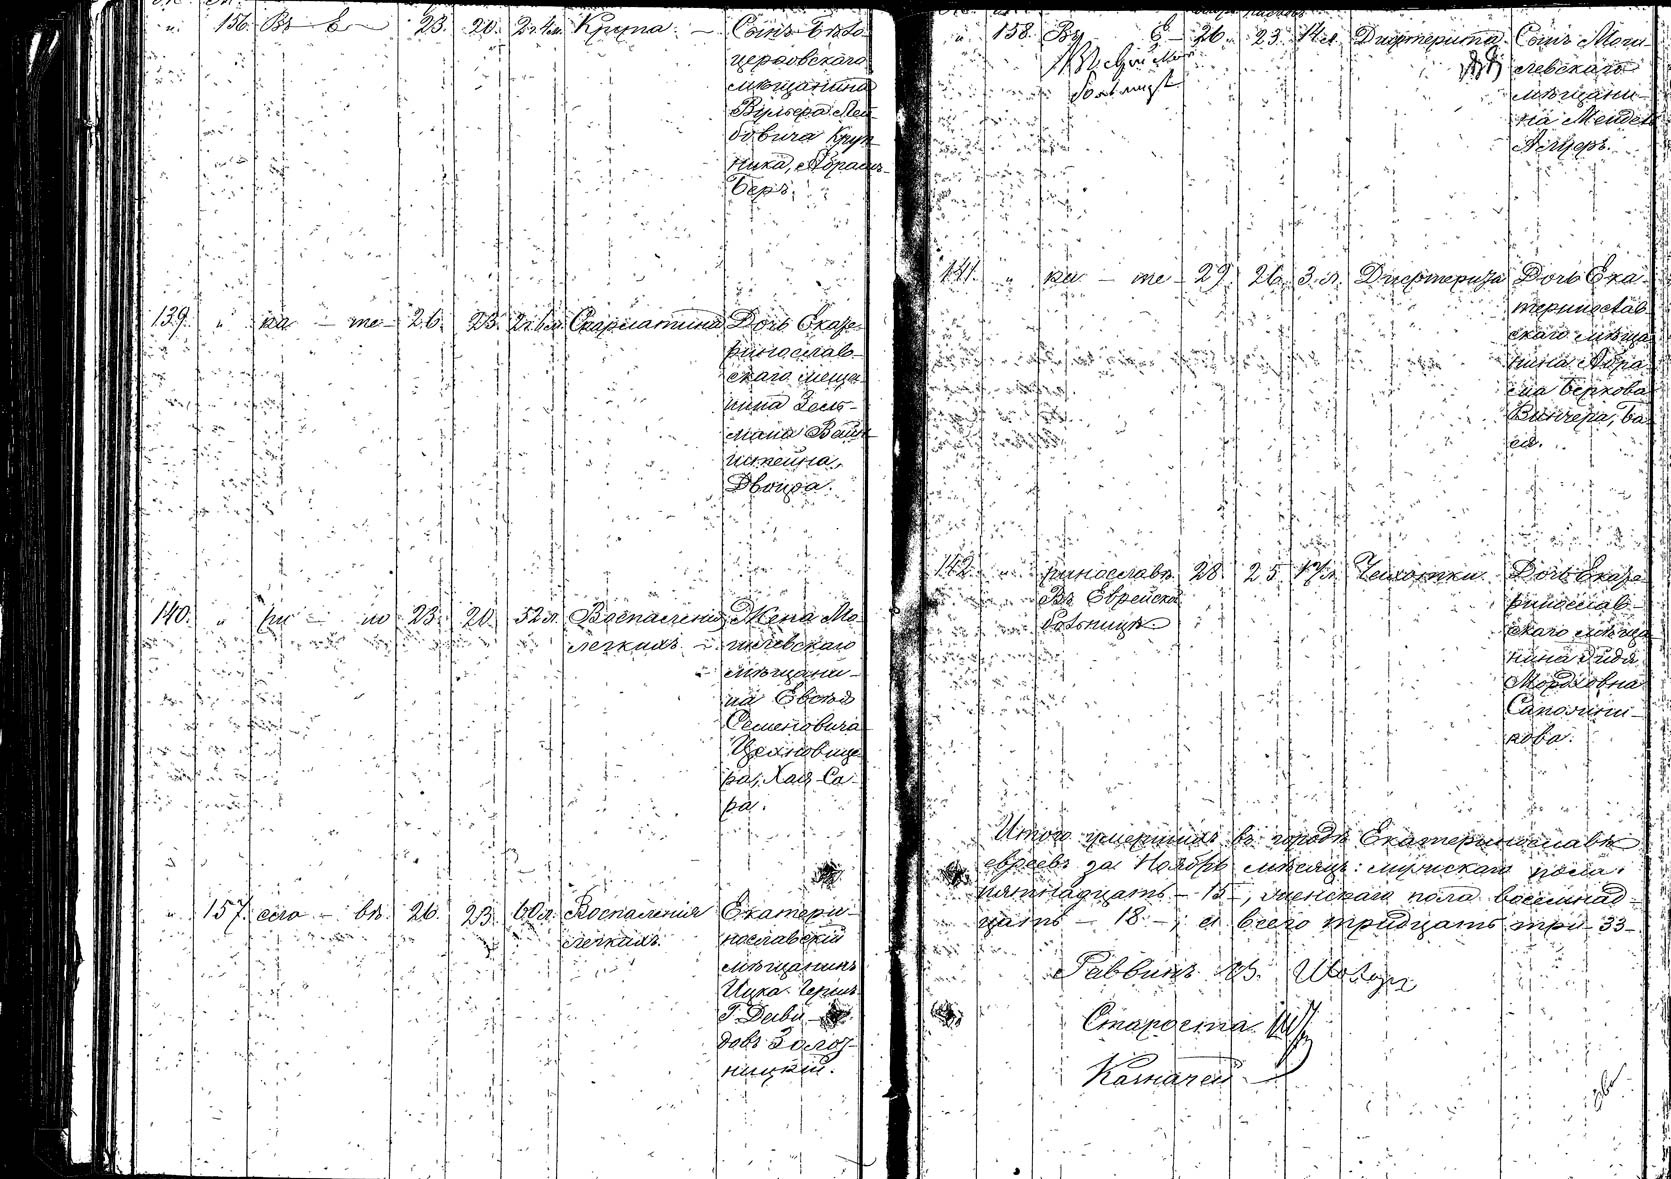 156. Въ Е 23. 20. 2 г. 4 м. Крупа. — Сынъ Бѣло-
церковскаго
мѣщанина
Вульфа Лей-
бовича Круп-
ника, Абрамъ-
Беръ.
139. " ка — те — 26. 23. Скарлатина Дочь Екате-
ринослав-
скаго меща-
нина Зель-
мана Вайн-
штейна,
Двойра.
140. " ри — но 23. 20. 52 л. Воспаленія Жена Мо-
легкихъ. — гилевскаго
мѣщани-
на Евсѣя
Семеновича
ра, Хая-Са-
ра.
157. сла — вѣ. 26. 23. 60 л. Воспаленія Екатери-
легкихъ. нославскій
мѣщанинъ
Ицка Герш
Г. Дави-
довъ Золот-
ницкій.
" 158. Въ Е — 26. 23. Дифтерита Сынъ Моги-
левскаго
мѣщани-
на Мендель
Алтеръ.
141. " ка — те — 29. 26. 3 л. Дифтерита Дочь Ека-
теринослав-
скаго мѣща-
нина Абра-
ма Беркова
Винчера, Ба-
ся.
142. " ринославѣ 28. 25. Чахотки Дочь Екате-
Въ Еврейской ринослав-
больницѣ скаго мѣща-
нина
Мордховна
Сапожни-
кова.
Итого умершихъ въ городѣ Екатеринославѣ
евреевъ за Ноябрь мѣсяцъ: мужскаго пола
пятнадцать — 15 —, женскаго пола восемнад-
цать — 18 —; а всего тридцать три — 33 —
Раввинъ
Староста
Казначей